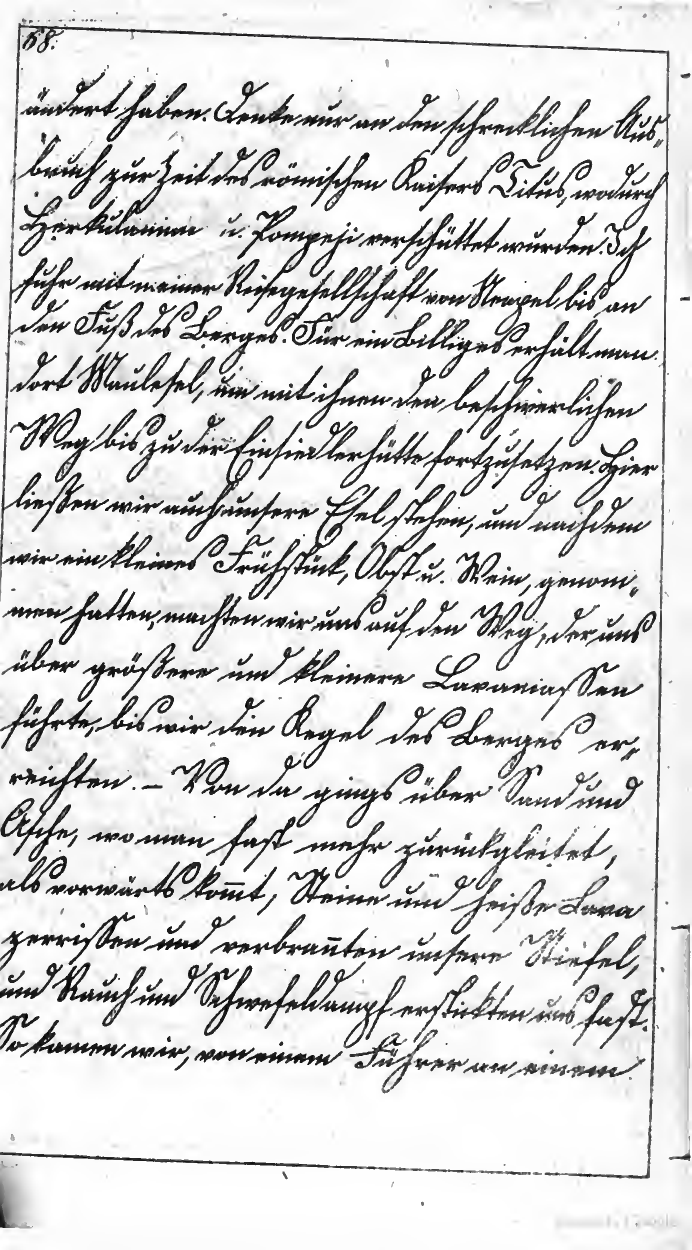 68.
ändert haben. Denke nur an den schrecklichen Aus-
bruch zur Zeit des römischen Kaisers Titus, wodurch
Herkulanum u. Pompeji verschüttet wurden. Ich
fuhr mit meiner Reisegesellschaft von Neapel bis an
den Fuß des Berges. Für ein Billiges erhält man
dort Maulesel, um mit ihnen den beschwerlichen
Weg bis zu der Einsiedlerhütte fortzusetzen. Hier
ließen wir auch unsere Esel stehen, und nachdem
wir ein kleines Frühstück, Obst u. Wein, genom-
men hatten, machten wir uns auf den Weg, der uns
über größere und kleinere Lavamassen
führte, bis wir den Kegel des Berges er-
reichten. – Von da gings über Sand und
Asche, wo man fast mehr zurückgleitet,
als vorwärts kom̅t, Steine und heiße Lava
zerrissen und verbran̅ten unsere Stiefel,
und Rauch und Schwefeldampf erstickten uns fast.
So kamen wir, von einem Führer an einem